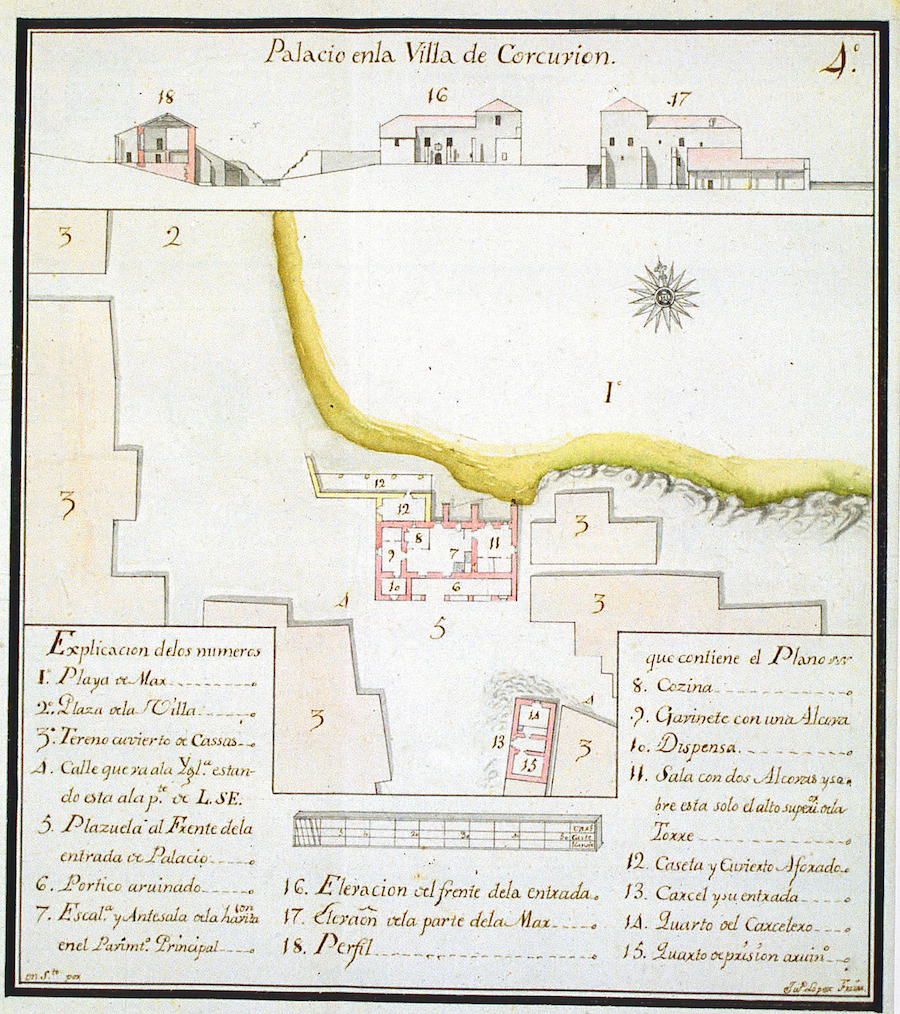 Palacio enla Villa de Corcuvion.
4.º
18
16
17
3
2
1º
3
12
12
8
11
9
7
10
6
3
3
4
5
3
14
4
13
15
3
Explicacion delos numeros
1.º Playa de Max
2.º Plaza dela Villa
3.º Tereno cuvierto de Cassas
4. Calle que va ala Ygl.ª estan-
do esta ala p.te de L.SE.
5. Plazuela al Frente dela
entrada de Palacio
6. Portico aruinado
7. Escal.ª y Antesala dela havita.on
enel Pavimt.º Principal
que contiene el Plano
8. Cozina
9. Gavinete con una Alcova
10. Dispensa.
11. Sala con dos Alcovas y so-
bre esta solo el alto super.or dela
Torre
12. Caseta y Cuvierto Aforado
13. Carcel y su entrada
14. Quarto del Carcelero
15. Quarto de prision aruin.º
16. Elevacion del frente dela entrada
17. Elevaōn dela parte dela Mar
18. Perfil
Jph. Lopez Freire